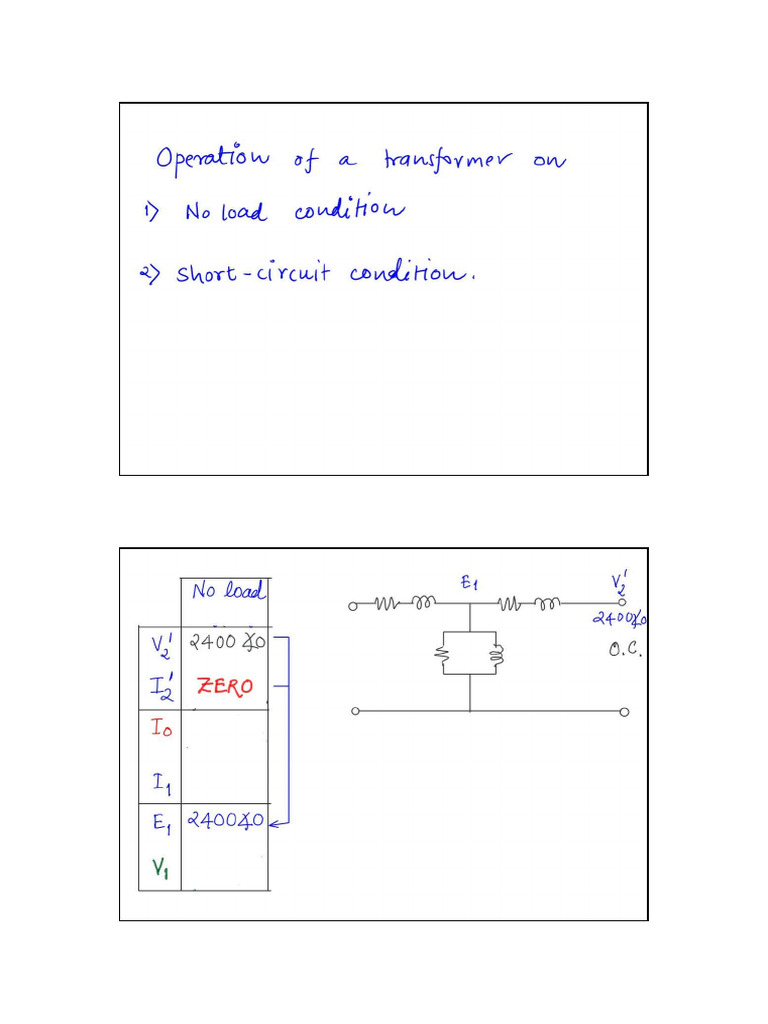 Operation of a transformer on
1) No load condition
2) Short-circuit condition.
No load
V2' 2400∠0
I2' ZERO
I0
I1
E1 2400∠0
V1
E1
V2'
2400∠0
O.C.